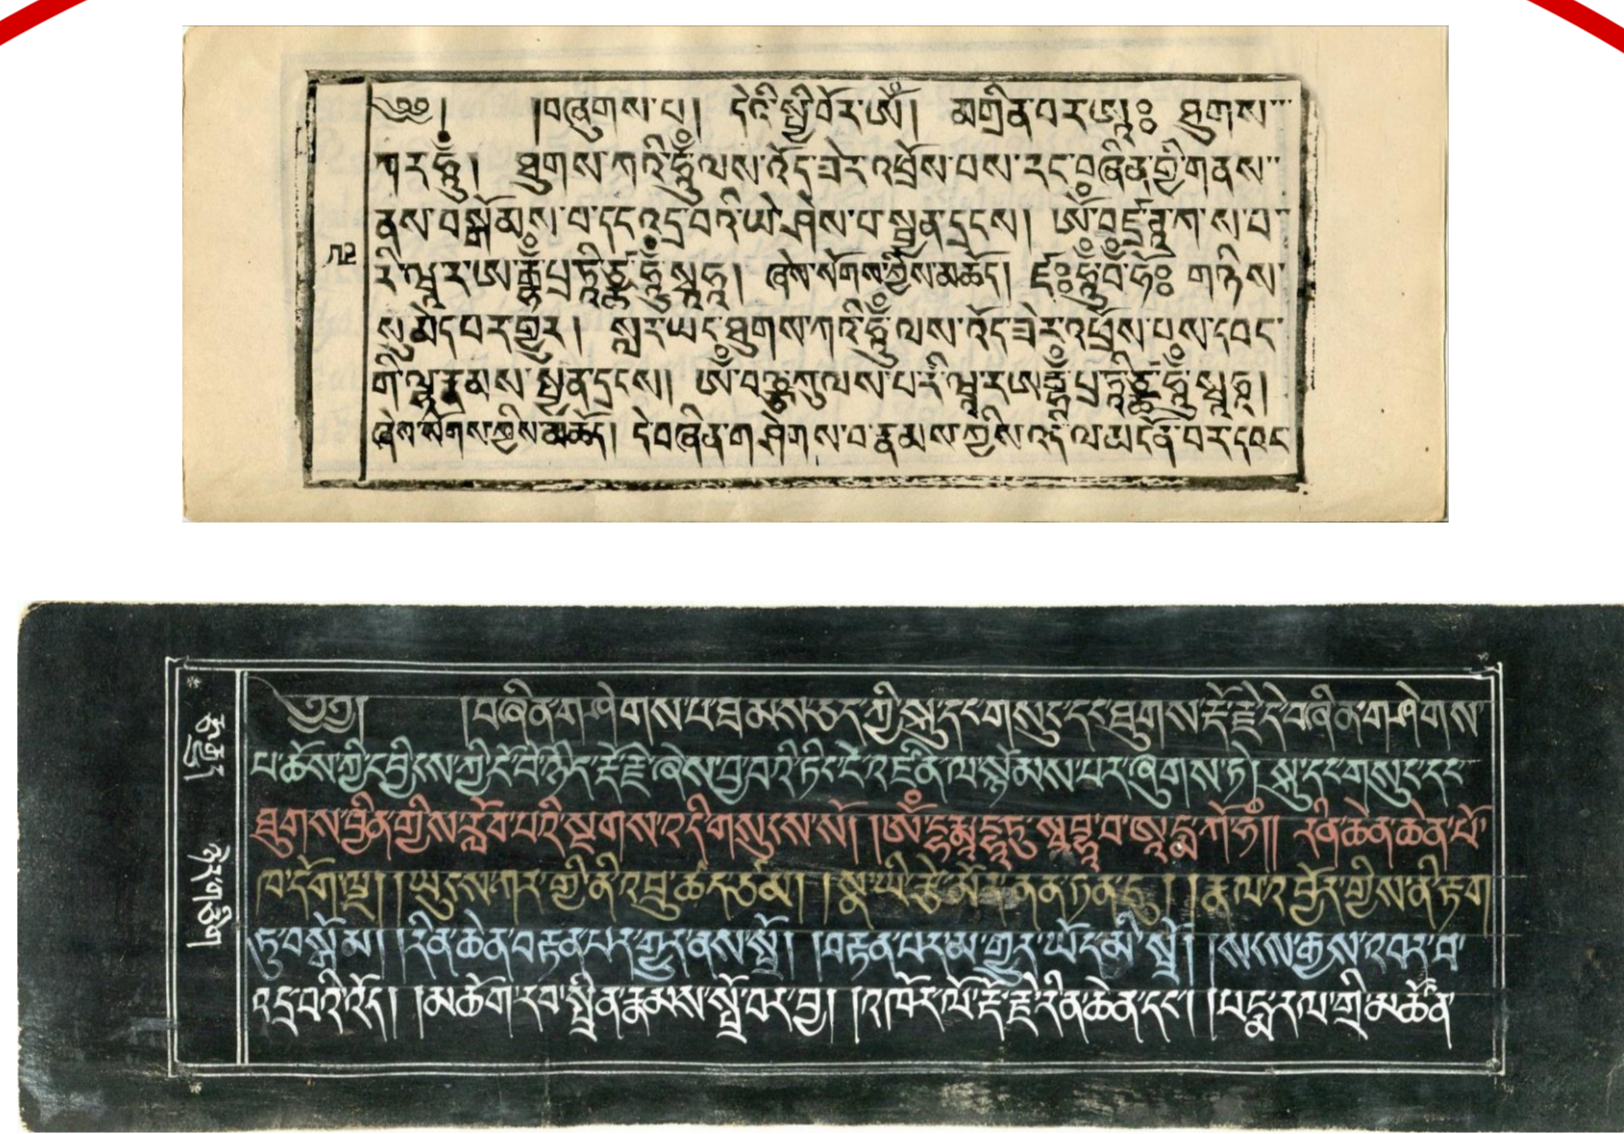 ༄༅། །བཞུགས་པ། དེའི་སྤྱི་བོར་ཨོཾ། མགྲིན་པར་ཨཱཿ ཐུགས་
ཀར་ཧཱུྃ། ཐུགས་ཀའི་ཧཱུྃ་ལས་འོད་ཟེར་འཕྲོས་པས་རང་བཞིན་གྱི་གནས་
ནས་བསྒོམས་པ་དང་འདྲ་བའི་ཡེ་ཤེས་པ་སྤྱན་དྲངས། ཨོཾ་བཛྲ་
ཞེས་སོགས་ཀྱིས་མཆོད། ཛཿཧཱུྃ་བཾ་ཧོཿ གཉིས་
སུ་མེད་པར་གྱུར། སླར་ཡང་ཐུགས་ཀའི་ཧཱུྃ་ལས་འོད་ཟེར་འཕྲོས་པས་དབང་
གི་ལྷ་རྣམས་སྤྱན་དྲངས།
ཞེས་སོགས་ཀྱིས་མཆོད། དེ་བཞིན་གཤེགས་པ་རྣམས་ཀྱིས་འདི་ལ་མངོན་པར་དབང་
༄༅། །བཞིན་གཤེགས་པ་ཐམས་ཅད་ཀྱི་སྐུ་དང་གསུང་དང་ཐུགས་རྡོ་རྗེ་དེ་བཞིན་གཤེགས་
པ་ཆོས་ཀྱི་དབྱིངས་ཀྱི་ངོ་བོ་ཉིད་རྡོ་རྗེ་ཞེས་བྱ་བའི་ཏིང་ངེ་འཛིན་ལ་སྙོམས་པར་ཞུགས་ཏེ། སྐུ་དང་གསུང་དང་
ཐུགས་བྱིན་གྱིས་རློབ་པའི་སྔགས་འདི་གསུངས་སོ། །ཨོཾ་ རིན་ཆེན་ཆེན་པོ་
ཁ་དོག་ལྔ། །ཡུངས་ཀར་གྱི་ནི་འབྲུ་ཚད་ཙམ། །སྣ་ཡི་རྩེ་མོར་ནན་ཏན་དུ། །རྣལ་འབྱོར་གྱིས་ནི་རྟག་
ཏུ་བསྒོམ། །རིན་ཆེན་བརྟན་པར་གྱུར་ནས་སྤྲོ། །བརྟན་པར་མ་གྱུར་ཡོད་མི་སྤྲོ། །སངས་རྒྱས་འབར་བ་
འདྲ་བའི་འོད། །མཆོག་རབ་སྤྲིན་རྣམས་སྤྲོ་བར་བྱ། །འཁོར་ལོ་རྡོ་རྗེ་རིན་ཆེན་དང༌། །པདྨ་རལ་གྲི་མཚོན་